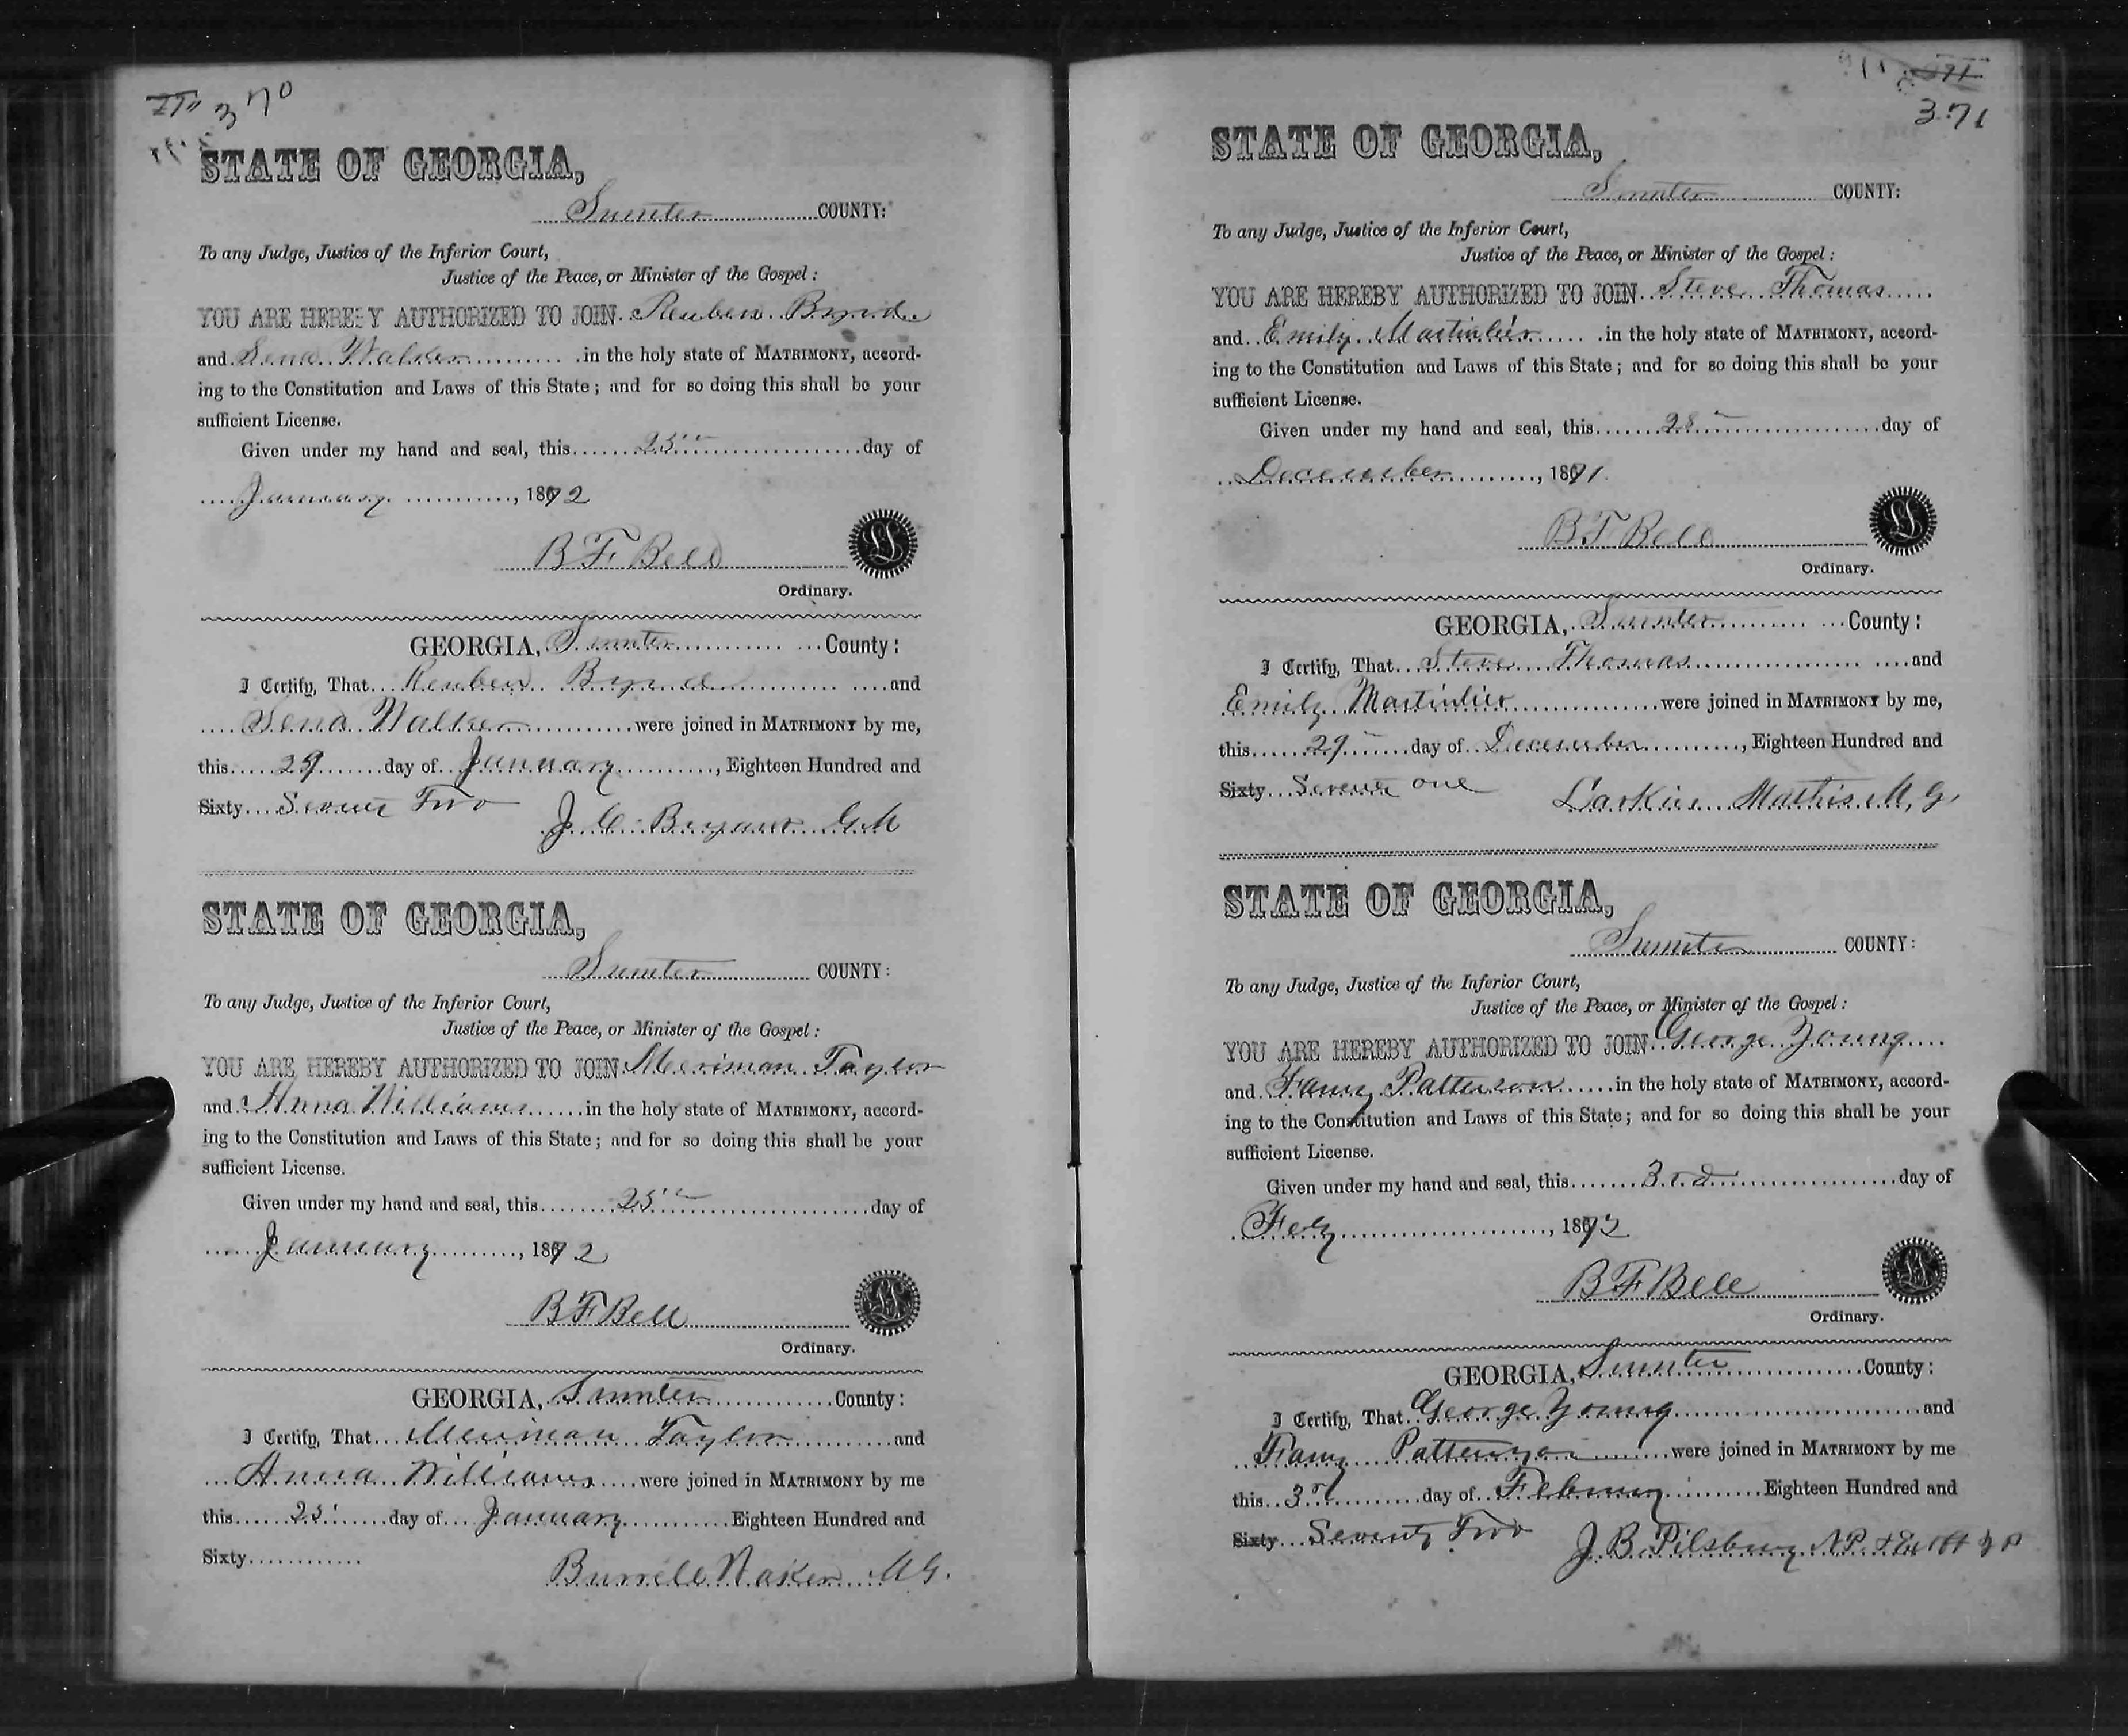 370
STATE OF GEORGIA,
Sumter COUNTY:
To any Judge, Justice of the Inferior Court,
Justice of the Peace, or Minister of the Gospel:
YOU ARE HEREBY AUTHORIZED TO JOIN Reuben
and Sena Walker in the holy state of MATRIMONY, accord-
ing to the Constitution and Laws of this State; and for so doing this shall be your
sufficient License.
Given under my hand and seal, this 25th day of
January, 1872
B F Bell
Ordinary.
GEORGIA, Sumter County:
I Certify, That Reuben and
Sena Walker were joined in MATRIMONY by me,
this 29 day of January, Eighteen Hundred and
Sixty Seventy Two
J. C. Bryant G M
STATE OF GEORGIA,
Sumter COUNTY:
To any Judge, Justice of the Inferior Court,
Justice of the Peace, or Minister of the Gospel:
YOU ARE HEREBY AUTHORIZED TO JOIN Merriman Taylor
and Anna Williams in the holy state of MATRIMONY, accord-
ing to the Constitution and Laws of this State; and for so doing this shall be your
sufficient License.
Given under my hand and seal, this 25th day of
January, 1872
B F Bell
Ordinary.
GEORGIA, Sumter County:
I Certify, That Merriman Taylor and
Anna Williams were joined in MATRIMONY by me
this 25 day of January Eighteen Hundred and
Sixty
Burrell Baker M G.
371
STATE OF GEORGIA,
Sumter COUNTY:
To any Judge, Justice of the Inferior Court,
Justice of the Peace, or Minister of the Gospel:
YOU ARE HEREBY AUTHORIZED TO JOIN Steve Thomas
and Emily in the holy state of MATRIMONY, accord-
ing to the Constitution and Laws of this State; and for so doing this shall be your
sufficient License.
Given under my hand and seal, this 28th day of
December, 1871
B F Bell
Ordinary.
GEORGIA, Sumter County:
I Certify, That Steve Thomas and
Emily were joined in MATRIMONY by me,
this 29th day of December, Eighteen Hundred and
Sixty Seventy one Larkin Mathis M, G,
STATE OF GEORGIA,
Sumter COUNTY:
To any Judge, Justice of the Inferior Court,
Justice of the Peace, or Minister of the Gospel:
YOU ARE HEREBY AUTHORIZED TO JOIN George Young
and Fany Patterson in the holy state of MATRIMONY, accord-
ing to the Constitution and Laws of this State; and for so doing this shall be your
sufficient License.
Given under my hand and seal, this 3rd day of
Feby, 1872
B F Bell
Ordinary.
GEORGIA, Sumter County:
I Certify, That George Young and
Fany were joined in MATRIMONY by me
this 3rd day of February Eighteen Hundred and
Sixty Seventy Two J. B. Pilsbury N P